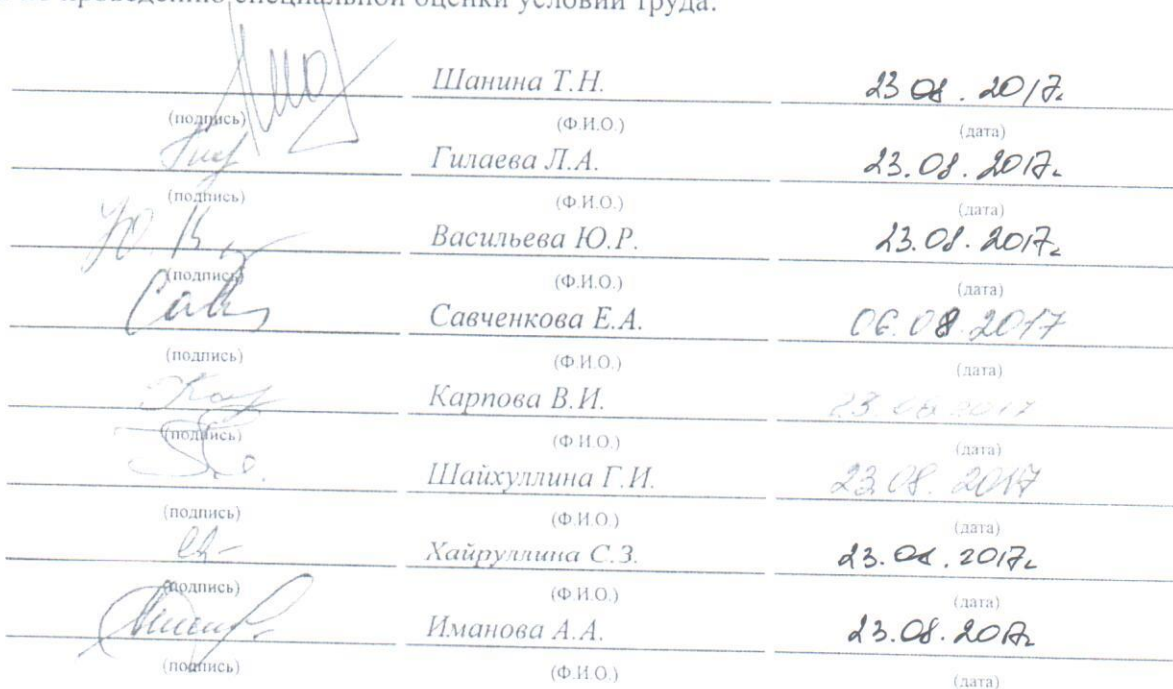 проведению специальной оценки условий труда:
Шанина Т.Н. 23.08.2017г.
(подпись) (Ф.И.О.) (дата)
Гилаева Л.А. 23.08.2017г.
(подпись) (Ф.И.О.) (дата)
Васильева Ю.Р. 23.08.2017г.
(подпись) (Ф.И.О.) (дата)
Савченкова Е.А. 06.08.2017
(подпись) (Ф.И.О.) (дата)
Карпова В.И. 23.08.2017
(подпись) (Ф.И.О.) (дата)
Шайхуллина Г.И. 23.08.2017
(подпись) (Ф.И.О.) (дата)
Хайруллина С.З. 23.08.2017г.
(подпись) (Ф.И.О.) (дата)
Иманова А.А. 23.08.2017г.
(подпись) (Ф.И.О.) (дата)